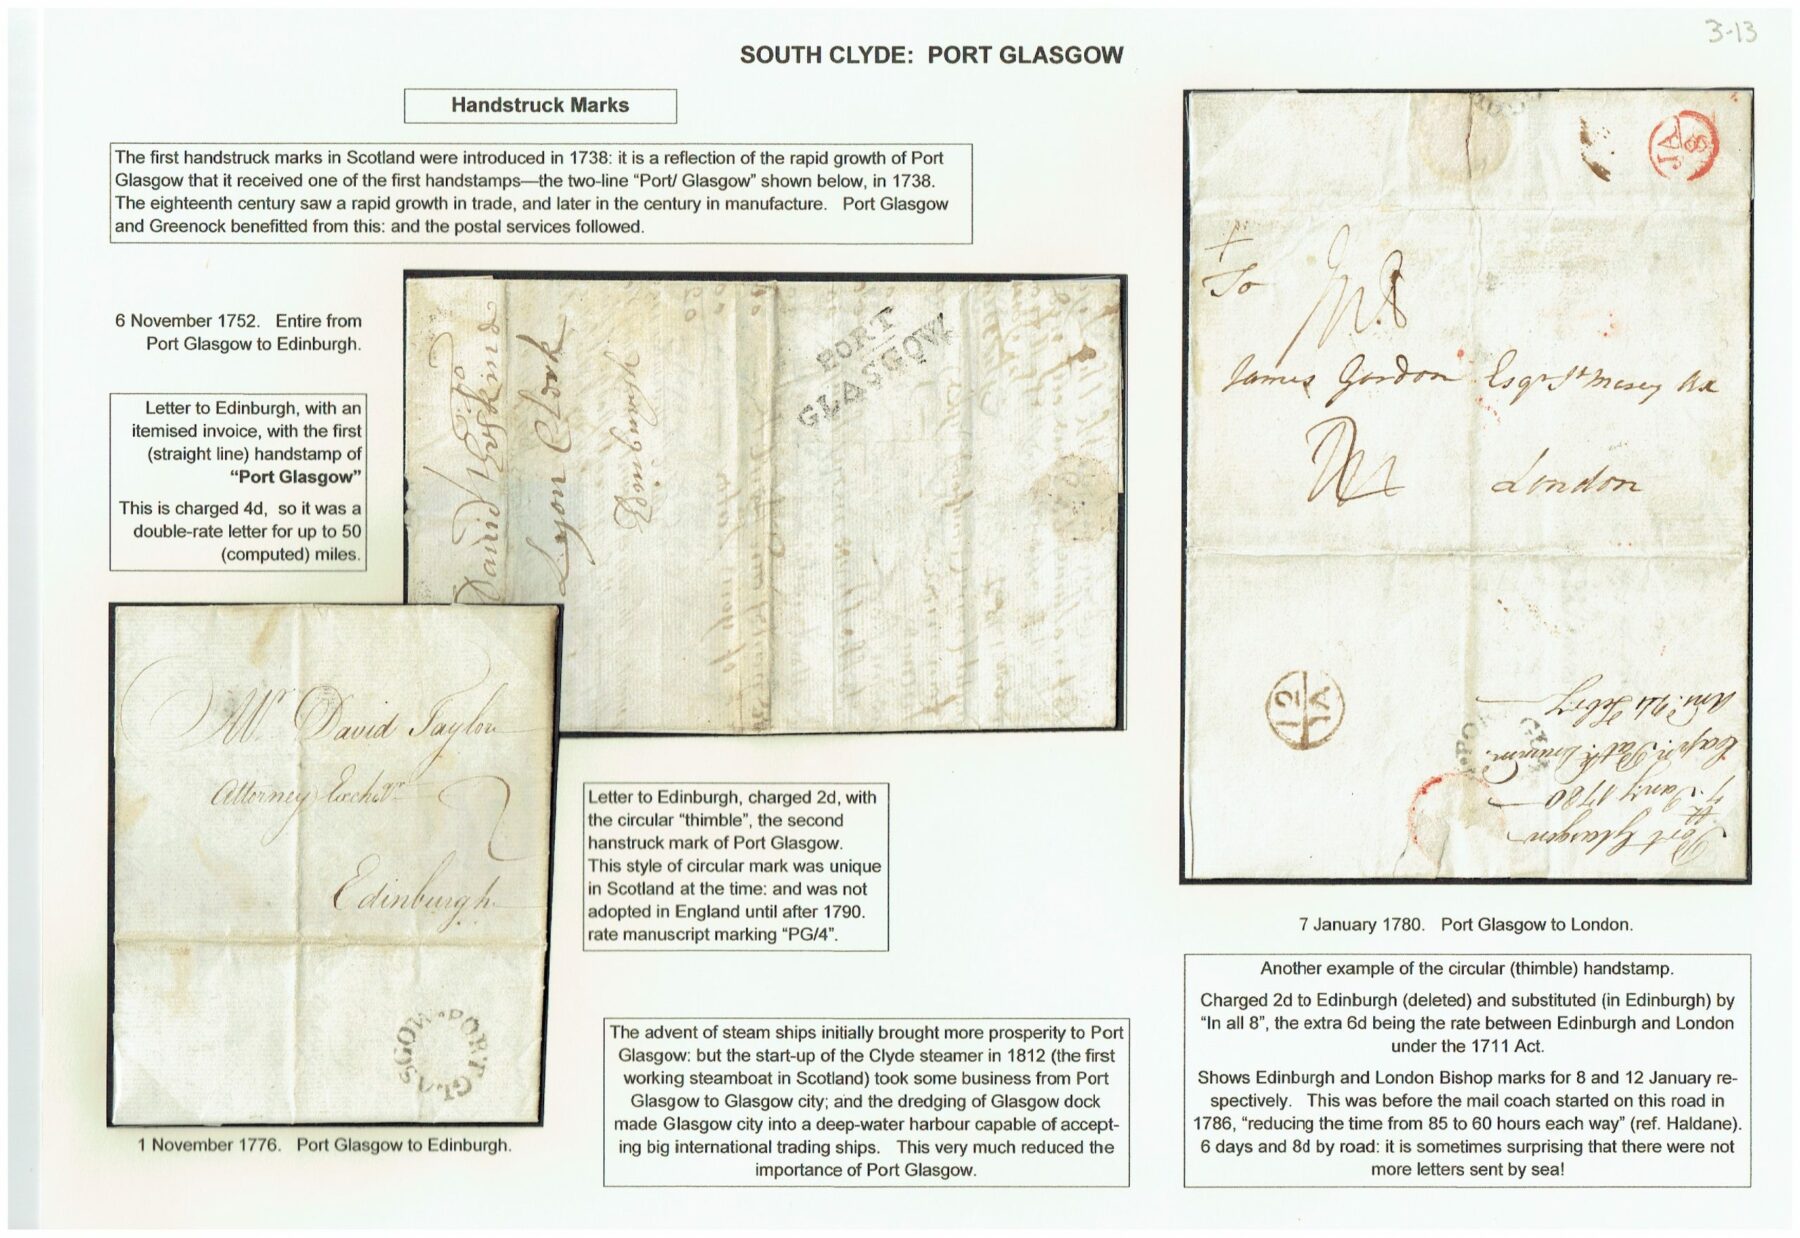 3-13
SOUTH CLYDE: PORT GLASGOW
Handstruck Marks
The first handstruck marks in Scotland were introduced in 1738: it is a reflection of the rapid growth of Port
Glasgow that it received one of the first handstamps—the two-line “Port/ Glasgow” shown below, in 1738.
The eighteenth century saw a rapid growth in trade, and later in the century in manufacture. Port Glasgow
and Greenock benefitted from this: and the postal services followed.
6 November 1752. Entire from
Port Glasgow to Edinburgh.
Letter to Edinburgh, with an
itemised invoice, with the first
(straight line) handstamp of
“Port Glasgow”
This is charged 4d, so it was a
double-rate letter for up to 50
(computed) miles.
To
David
Lyon Clerk
Edinburgh
PORT
GLASGOW
Mr David Taylor
Attorney Exchqr
2
Edinburgh
PORT GLASGOW
1 November 1776. Port Glasgow to Edinburgh.
Letter to Edinburgh, charged 2d, with
the circular “thimble”, the second
hanstruck mark of Port Glasgow.
This style of circular mark was unique
in Scotland at the time: and was not
adopted in England until after 1790.
rate manuscript marking “PG/4”.
The advent of steam ships initially brought more prosperity to Port
Glasgow: but the start-up of the Clyde steamer in 1812 (the first
working steamboat in Scotland) took some business from Port
Glasgow to Glasgow city; and the dredging of Glasgow dock
made Glasgow city into a deep-water harbour capable of accept-
ing big international trading ships. This very much reduced the
importance of Port Glasgow.
JA
8
To
James Gordon Esqr
London
12
IA
Port Glasgow
7 Jany 1780
7 January 1780. Port Glasgow to London.
Another example of the circular (thimble) handstamp.
Charged 2d to Edinburgh (deleted) and substituted (in Edinburgh) by
“In all 8”, the extra 6d being the rate between Edinburgh and London
under the 1711 Act.
Shows Edinburgh and London Bishop marks for 8 and 12 January re-
spectively. This was before the mail coach started on this road in
1786, “reducing the time from 85 to 60 hours each way” (ref. Haldane).
6 days and 8d by road: it is sometimes surprising that there were not
more letters sent by sea!